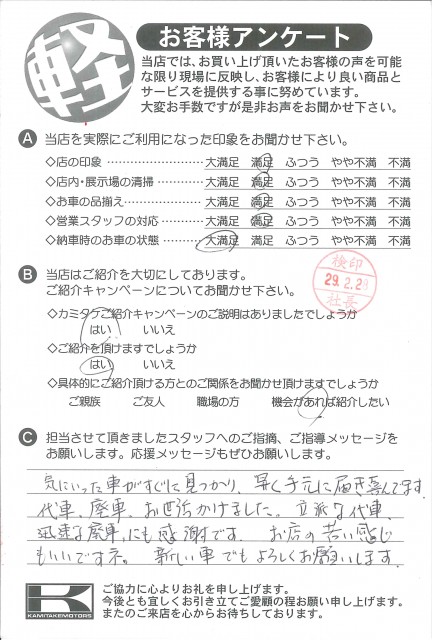 軽
お客様アンケート
当店では、お買い上げ頂いたお客様の声を可能
な限り現場に反映し、お客様により良い商品と
サービスを提供する事に努めています。
大変お手数ですが是非お声をお聞かせ下さい。
A 当店を実際にご利用になった印象をお聞かせ下さい。
◇店の印象 ………………… 大満足 満足 ふつう やや不満 不満
◇店内・展示場の清掃 ………… 大満足 満足 ふつう やや不満 不満
◇お車の品揃え ……………… 大満足 満足 ふつう やや不満 不満
◇営業スタッフの対応 ………… 大満足 満足 ふつう やや不満 不満
◇納車時のお車の状態 ………… 大満足 満足 ふつう やや不満 不満
B 当店はご紹介を大切にしております。
ご紹介キャンペーンについてお聞かせ下さい。
検印
29.2.28
社長
◇カミタケご紹介キャンペーンのご説明はありましたでしょうか
はい いいえ
◇ご紹介を頂けますでしょうか
はい いいえ
◇具体的にご紹介頂ける方とのご関係をお聞かせ頂けますでしょうか
ご親族 ご友人 職場の方 機会があれば紹介したい
C 担当させて頂きましたスタッフへのご指摘、ご指導メッセージを
お願いします。応援メッセージもぜひお願いします。
気にいった車がすぐに見つかり、早く手元に届き喜んでます。
代車、廃車、お世話かけました。立派な代車、
迅速な廃車、にも感謝です。お店の若い感じ
もいいですネ。新しい車でもよろしくお願いします。
K
KAMITAKEMOTORS
ご協力に心よりお礼を申し上げます。
今後とも宜しくお引き立てご愛顧の程お願い申し上げます。
またのご来店を心からお待ちしております。